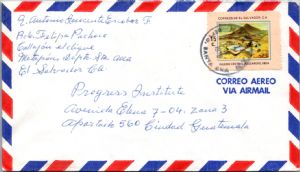 G. Antonio Lucante Escobar F.
Polo. Felipe Pacheco
Callejón el tigre
Metapán, Depto. Sta. Ana
El Salvador C.A.
CORREOS DE EL SALVADOR, C.A.
CORREO AEREO
VIA AIRMAIL
Progress Institute
Avenida Elena 7-04, Zona 3
Apartado 560 Ciudad Guatemala